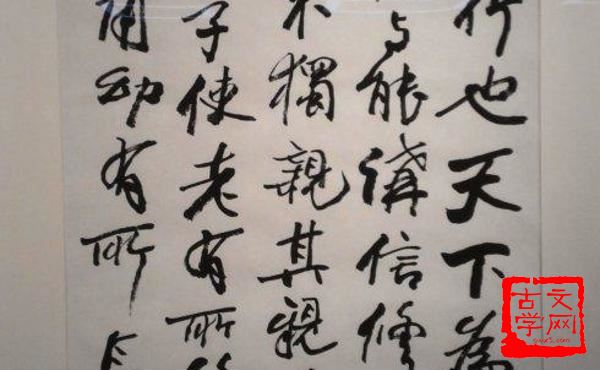 行也天下為
与能講信修
不獨親其親
子使老有所終
用幼有所長
古文
学网